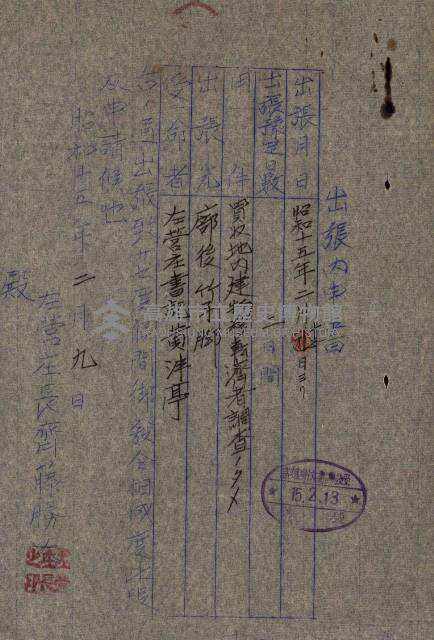 出張内申書
出張月日 昭和十五年二月九日ヨリ
出張豫定日數 二日間
用件 買收地內建物移轉濟者調查ノタメ
出張先 廓後 竹子脚
受命者 左營庄書記 黃沣亭
右ノ通出張致サセ度候間御發令相成度此段
及申請候也
昭和十五年二月九日
左營庄長 齊藤勝
殿
15.2.13
高雄市立歷史博物館